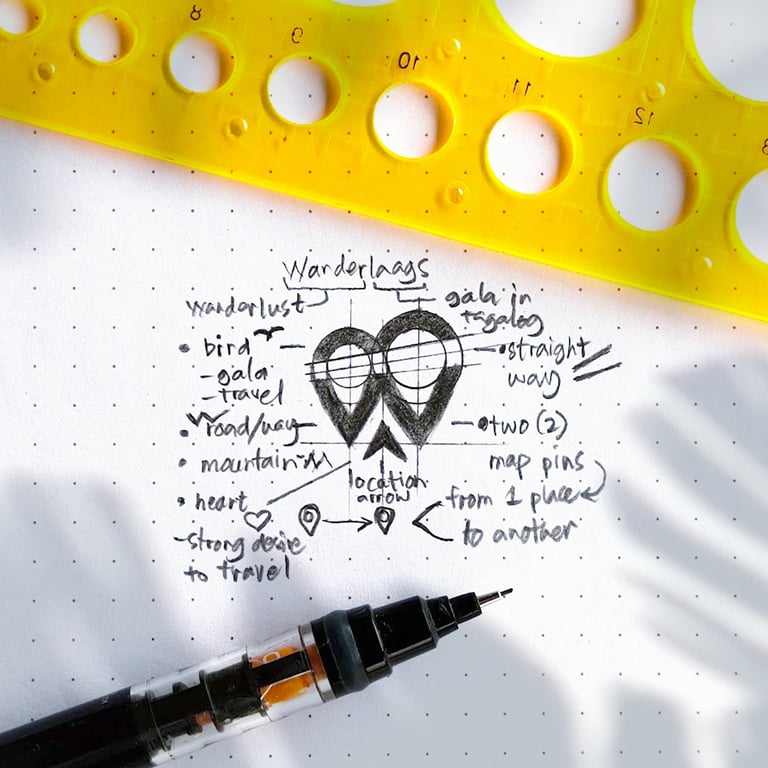 8
9
10
11
12
Wanderlaags
wanderlust
gala in
tagalog
• bird
- gala
- travel
• straight
way
• road/way
• two (2)
map pins
• mountain
location
arrow
• heart
from 1 place
to another
- strong desire
to travel